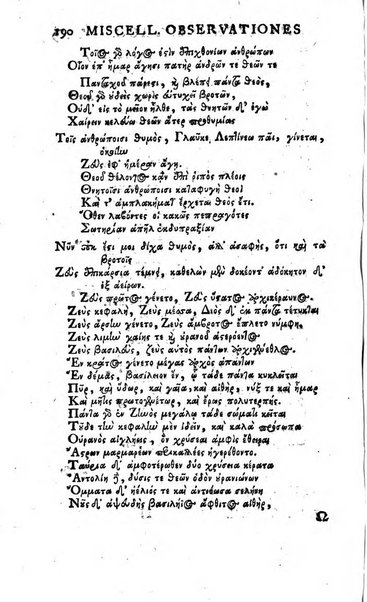 290 MISCELL. OBSERVATIONES
Τοῖος γδ λόγος ἐστὶν ἐπιχθονίων ἀνθρώπων
Οἷον ἐπ' ἦμαρ ἄγησι πατὴρ ἀνδρῶν τε θεῶν τε
Πανταχοῦ πάρεστι, καὶ βλέπει πάντα θεὸς,
Θεοῦ γδ οὐδεὶς χωρὶς εὐτυχεῖ βροτῶν,
Οὐδ' εἰς τὸ μεῖον ἦλθε, τὰς θνητῶν δ' ἐγὼ
Χαίρειν κελεύω θεῶν ἄτερ προθυμίας
Τοῖς ἀνθρώποισι θυμὸς, Γλαῦκε, Λεπτίνεω παῖ, γίνεται,
ὁκοίην
Ζεὺς ἐφ' ἡμέραν ἄγῃ.
Θεοῦ θέλοντος κἂν ἐπὶ ῥιπὸς πλέοις
Θνητοῖσι ἀνθρώποισι καταφυγὴ θεοὶ
Καὶ τ' ἀμπλακήματ' ἔρχεται θεὸς ἔτι.
Ὅθεν λαβόντες οἱ κακῶς πεπραγότες
Σωτηρίαν
Νῦν οὐκ ἔστι μοι δίχα θυμὸς, ἀπ' ἀσαφὴς, ὅτι καὶ τὰ
βροτοῖς
Ζεὺς ἐπικάρσια τέμνει, καθελὼν μὲν δοκέοντ' ἀδόκητον δ'
ἐξ ἀείρων.
Ζεὺς πρῶτος γένετο, Ζεὺς ὕστατος ἀρχικέραυνος.
Ζεὺς κεφαλὴ, Ζεὺς μέσσα, Διὸς δ' ἐκ πάντα τέτυκται
Ζεὺς ἄρσην γένετο, Ζεὺς ἄμβροτος ἔπλετο νύμφη,
Ζεὺς πυθμὴν γαίης τε καὶ οὐρανοῦ ἀστερόεντος
Ζεὺς βασιλεὺς, ζεὺς αὐτὸς πάντων ἀρχιγένεθλος.
Ἓν κράτος γένετο μέγας ἀρχὸς ἁπάντων
Ἓν δέμας, βασίλειον ἓν, ᾧ τάδε πάντα κυκλεῖται
Πῦρ, καὶ ὕδωρ, καὶ γαῖα, καὶ αἰθὴρ, νύξ τε καὶ ἦμαρ
Καὶ μῆτις πρωτογένετωρ, καὶ ἔρως πολυτερπής.
Πάντα γδ ἐν Ζηνὸς μεγάλῳ τάδε σώματι κεῖται
Τοῦδε τὴν κεφαλὴν μὲν ἰδεῖν, καὶ καλὰ πρόσωπα
Οὐρανὸς αἰγλήεις, ὃν χρύσεαι ἀμφὶς ἔθειραι
Ἄστρων μαρμαρέων περικαλλέες ἠερέθονται.
Ταύρεα δ' ἀμφοτέρωθεν δύο χρύσεια κέρατα
Ἀντολίη τε, δύσις τε θεῶν ὁδοὶ οὐρανιώνων
Ὄμματα δ' ἠέλιός τε καὶ ἀντιόωσα σελήνη
Νοῦς δ' ἀψευδὴς βασιλήϊος ἄφθιτος αἰθὴρ,
Ω